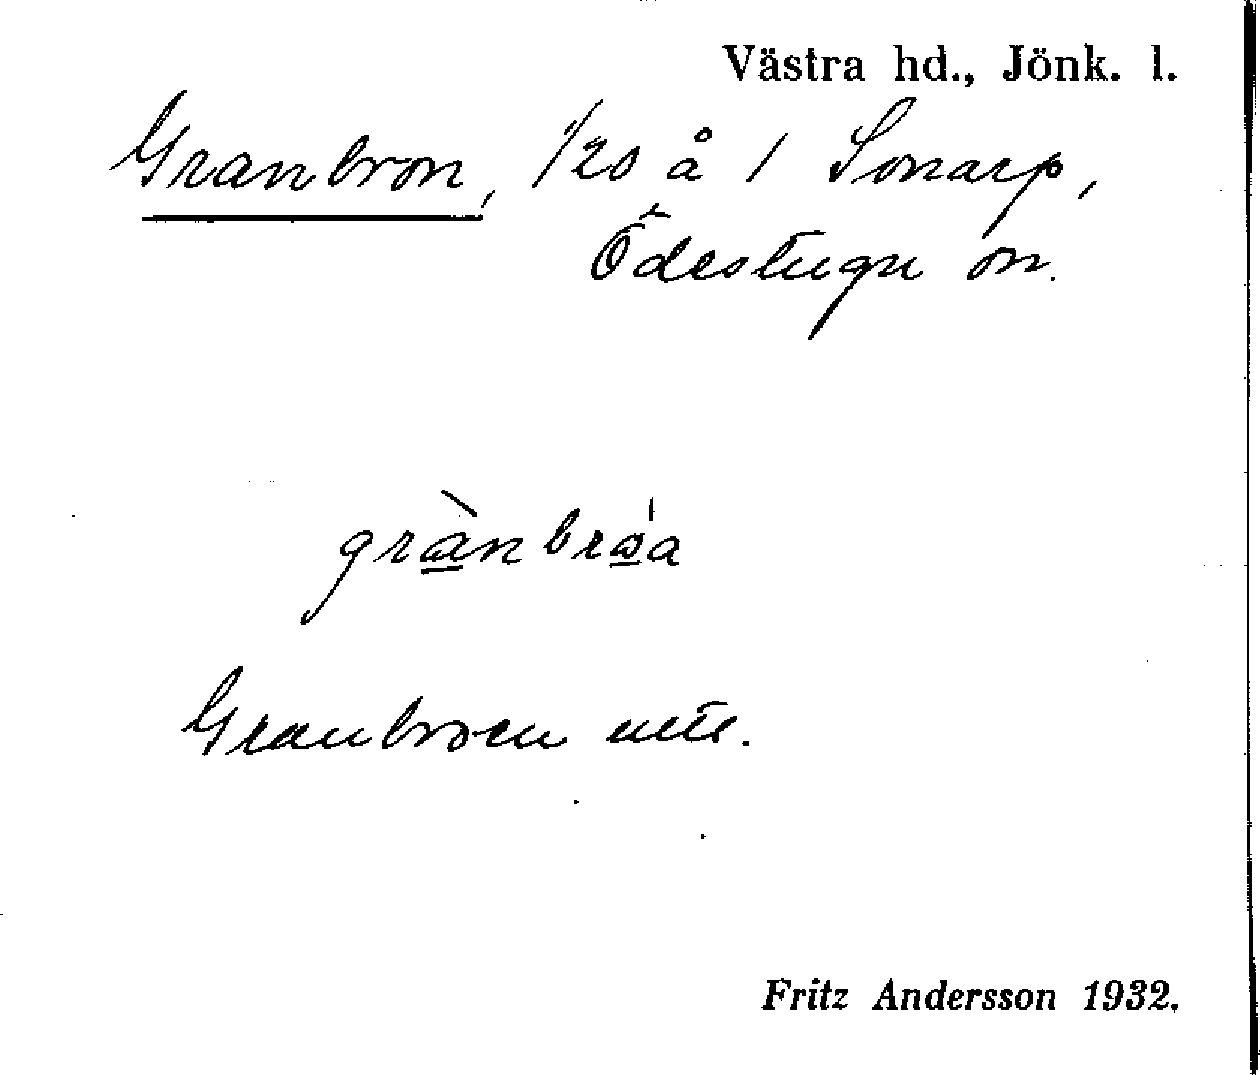 Västra hd., Jönk. l.
Granbron, 1/20 å 1 Sonarp,
Ödestugu sn.
grànbróa
Granbroen uttr.
Fritz Andersson 1932.